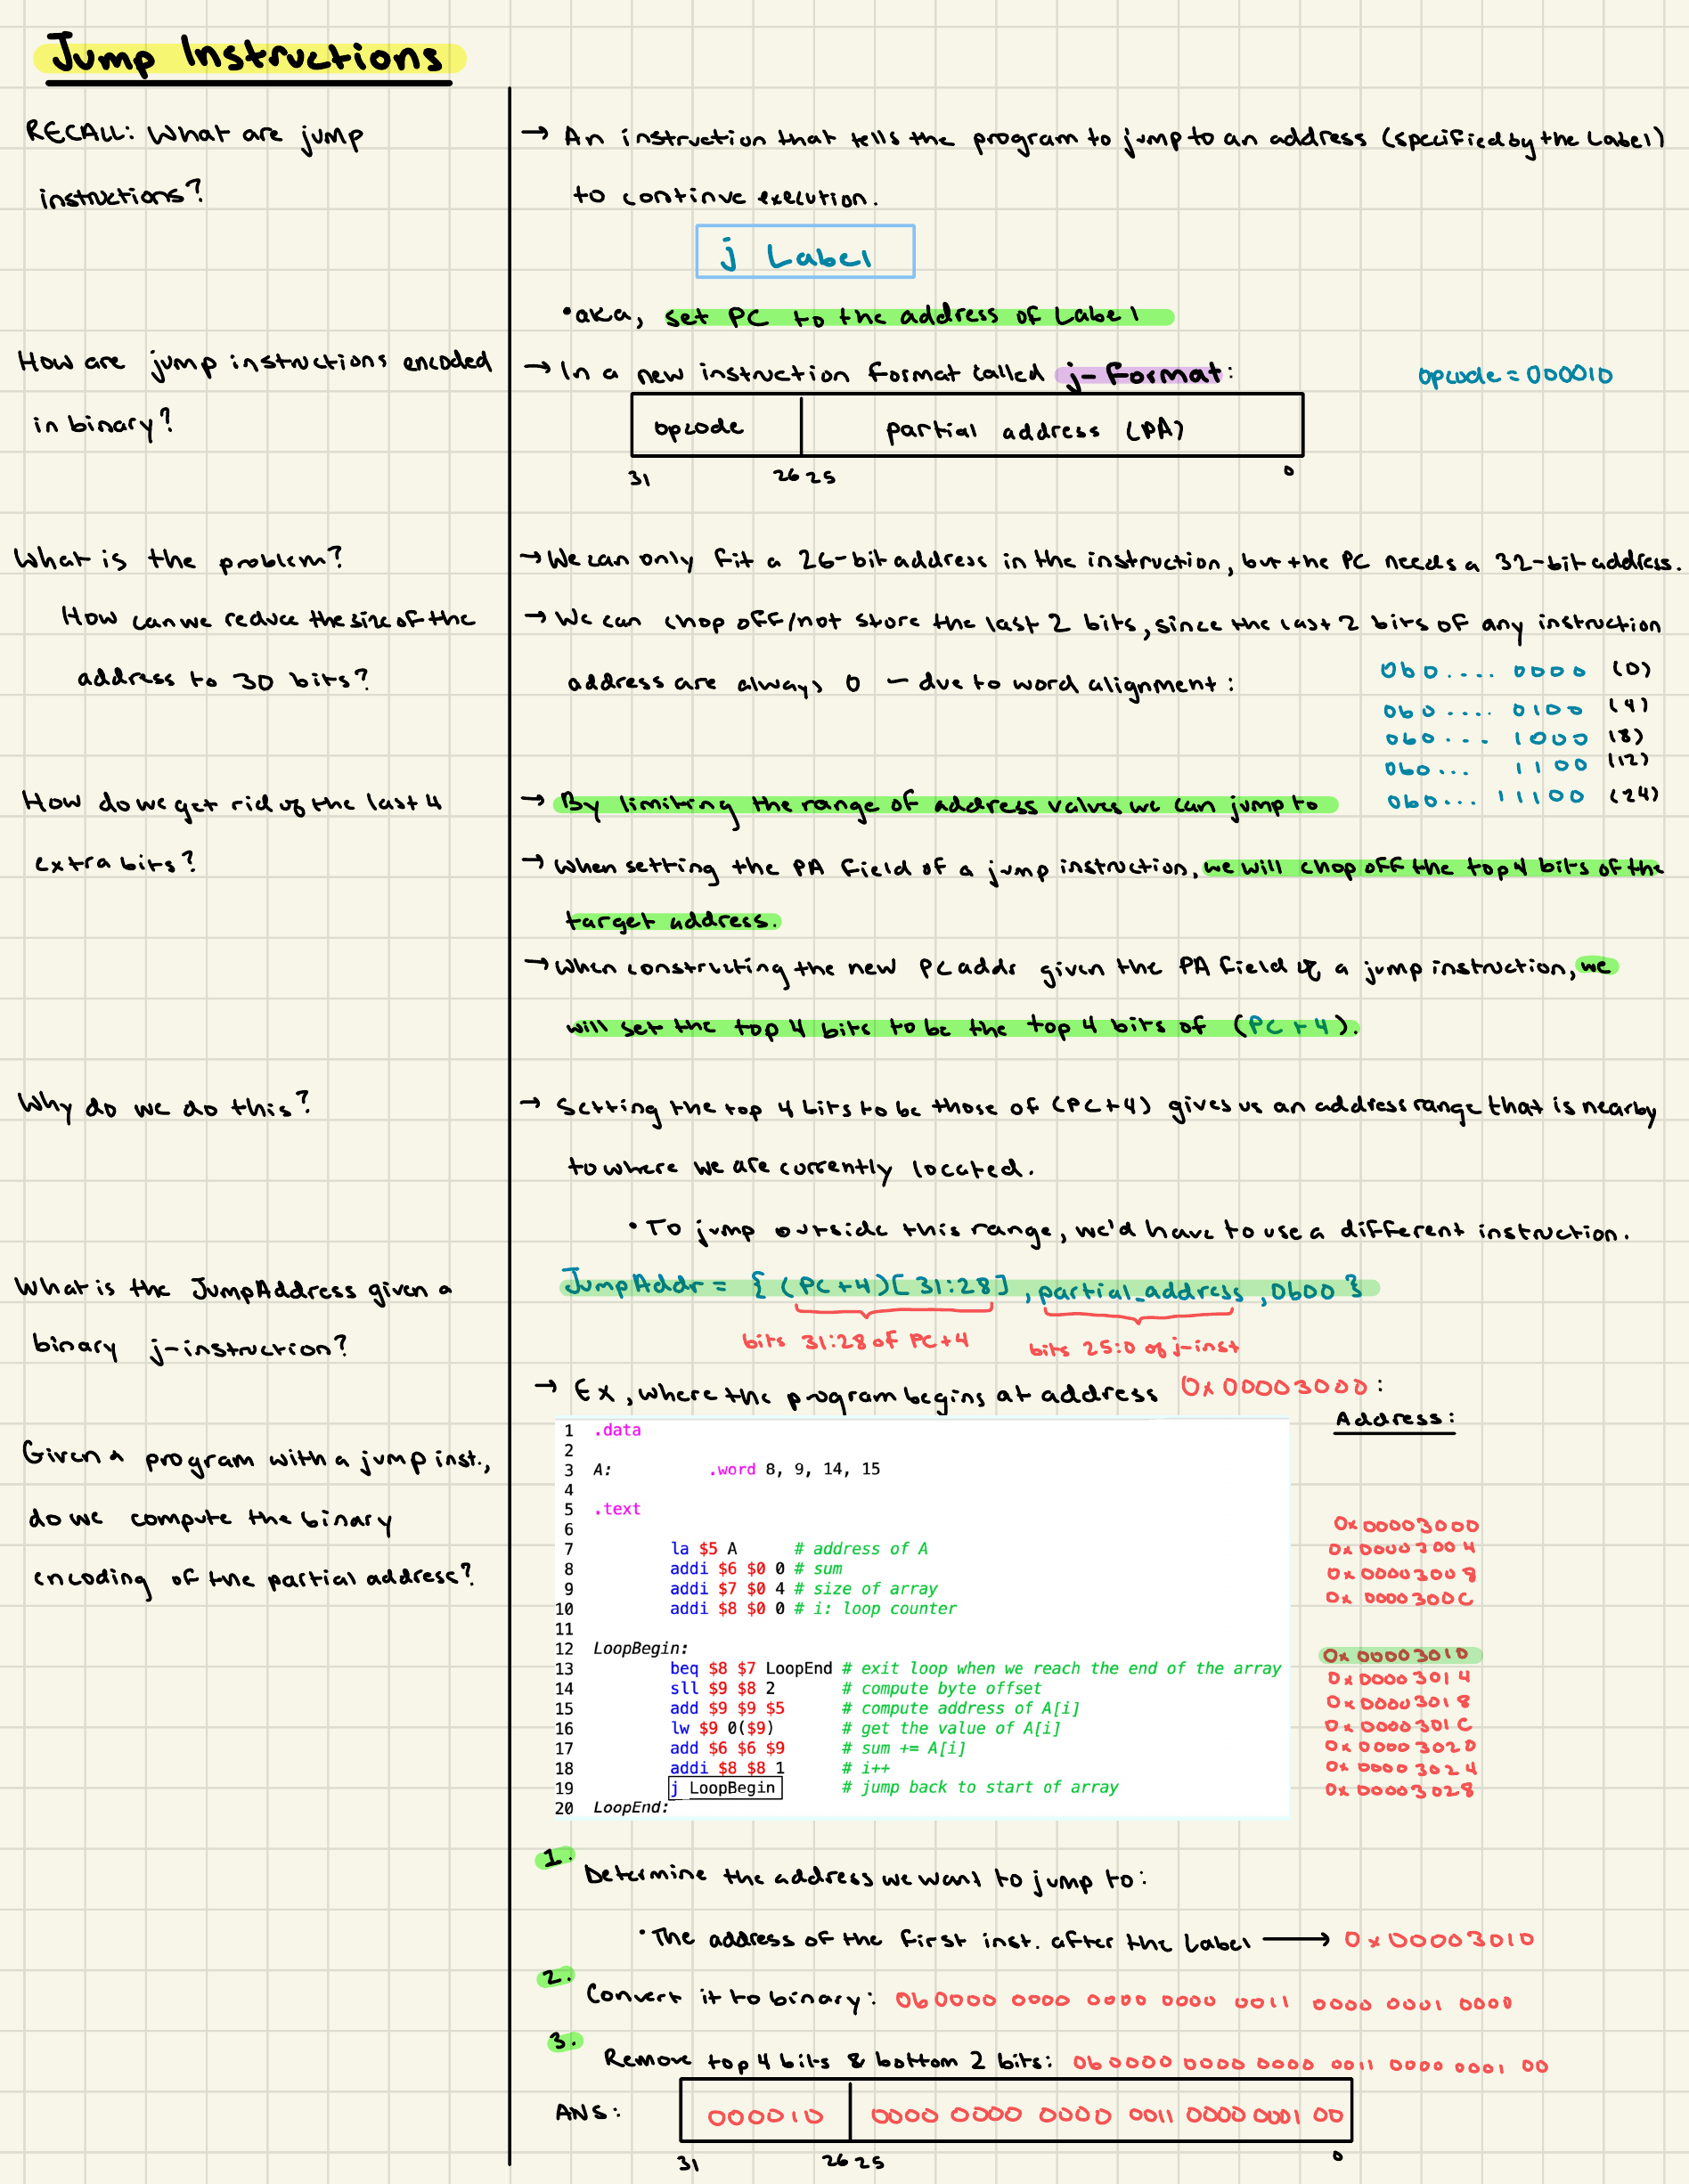 Jump Instructions
RECALL: What are jump
instructions?
→ An instruction that tells the program to jump to an address (specified by the Label)
to continue execution.
j Label
• aka, set PC to the address of Label
How are jump instructions encoded
in binary?
→ In a new instruction format called j-format:
opcode = 000010
opcode partial address (PA)
31 26 25 0
What is the problem?
→ We can only fit a 26-bit address in the instruction, but the PC needs a 32-bit address.
How can we reduce the size of the
address to 30 bits?
→ We can chop off/not store the last 2 bits, since the last 2 bits of any instruction
address are always 0 - due to word alignment:
0b0.... 0000 (0)
0b0.... 0100 (4)
0b0... 1000 (8)
0b0... 1100 (12)
0b0... 11100 (24)
How do we get rid of the last 4
extra bits?
→ By limiting the range of address values we can jump to
→ When setting the PA field of a jump instruction, we will chop off the top 4 bits of the
target address.
→ When constructing the new PC addr given the PA field of a jump instruction, we
will set the top 4 bits to be the top 4 bits of (PC+4).
Why do we do this?
→ Setting the top 4 bits to be those of (PC+4) gives us an address range that is nearby
to where we are currently located.
• To jump outside this range, we'd have to use a different instruction.
What is the JumpAddress given a
binary j-instruction?
JumpAddr = { (PC+4)[31:28], partial_address, 0b00 }
bits 31:28 of PC+4
bits 25:0 of j-inst
→ Ex, where the program begins at address 0x00003000:
Address:
Given a program with a jump inst.,
do we compute the binary
encoding of the partial address?
1 .data
2
3 A: .word 8, 9, 14, 15
4
5 .text
6
7 la $5 A # address of A 0x00003000
8 addi $6 $0 0 # sum 0x00003004
9 addi $7 $0 4 # size of array 0x00003008
10 addi $8 $0 0 # i: loop counter 0x0000300C
11
12 LoopBegin:
13 beq $8 $7 LoopEnd # exit loop when we reach the end of the array 0x00003010
14 sll $9 $8 2 # compute byte offset 0x00003014
15 add $9 $9 $5 # compute address of A[i] 0x00003018
16 lw $9 0($9) # get the value of A[i] 0x0000301C
17 add $6 $6 $9 # sum += A[i] 0x00003020
18 addi $8 $8 1 # i++ 0x00003024
19 j LoopBegin # jump back to start of array 0x00003028
20 LoopEnd:
1. Determine the address we want to jump to:
• The address of the first inst. after the Label → 0x00003010
2. Convert it to binary: 0b 0000 0000 0000 0000 0011 0000 0001 0000
3. Remove top 4 bits & bottom 2 bits: 0b 0000 0000 0000 0011 0000 0001 00
ANS: 000010 0000 0000 0000 0011 0000 0001 00
31 26 25 0